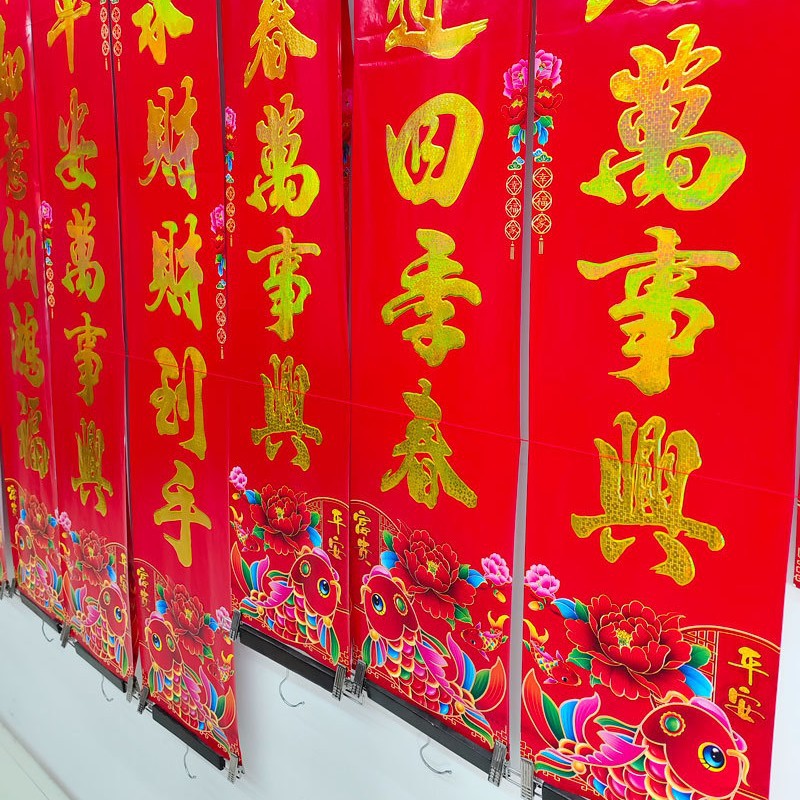 如意納鴻福
平安萬事興
富贵
平安
財財到手
富贵
春萬事興
平安
四季春
富贵
萬事興
平安